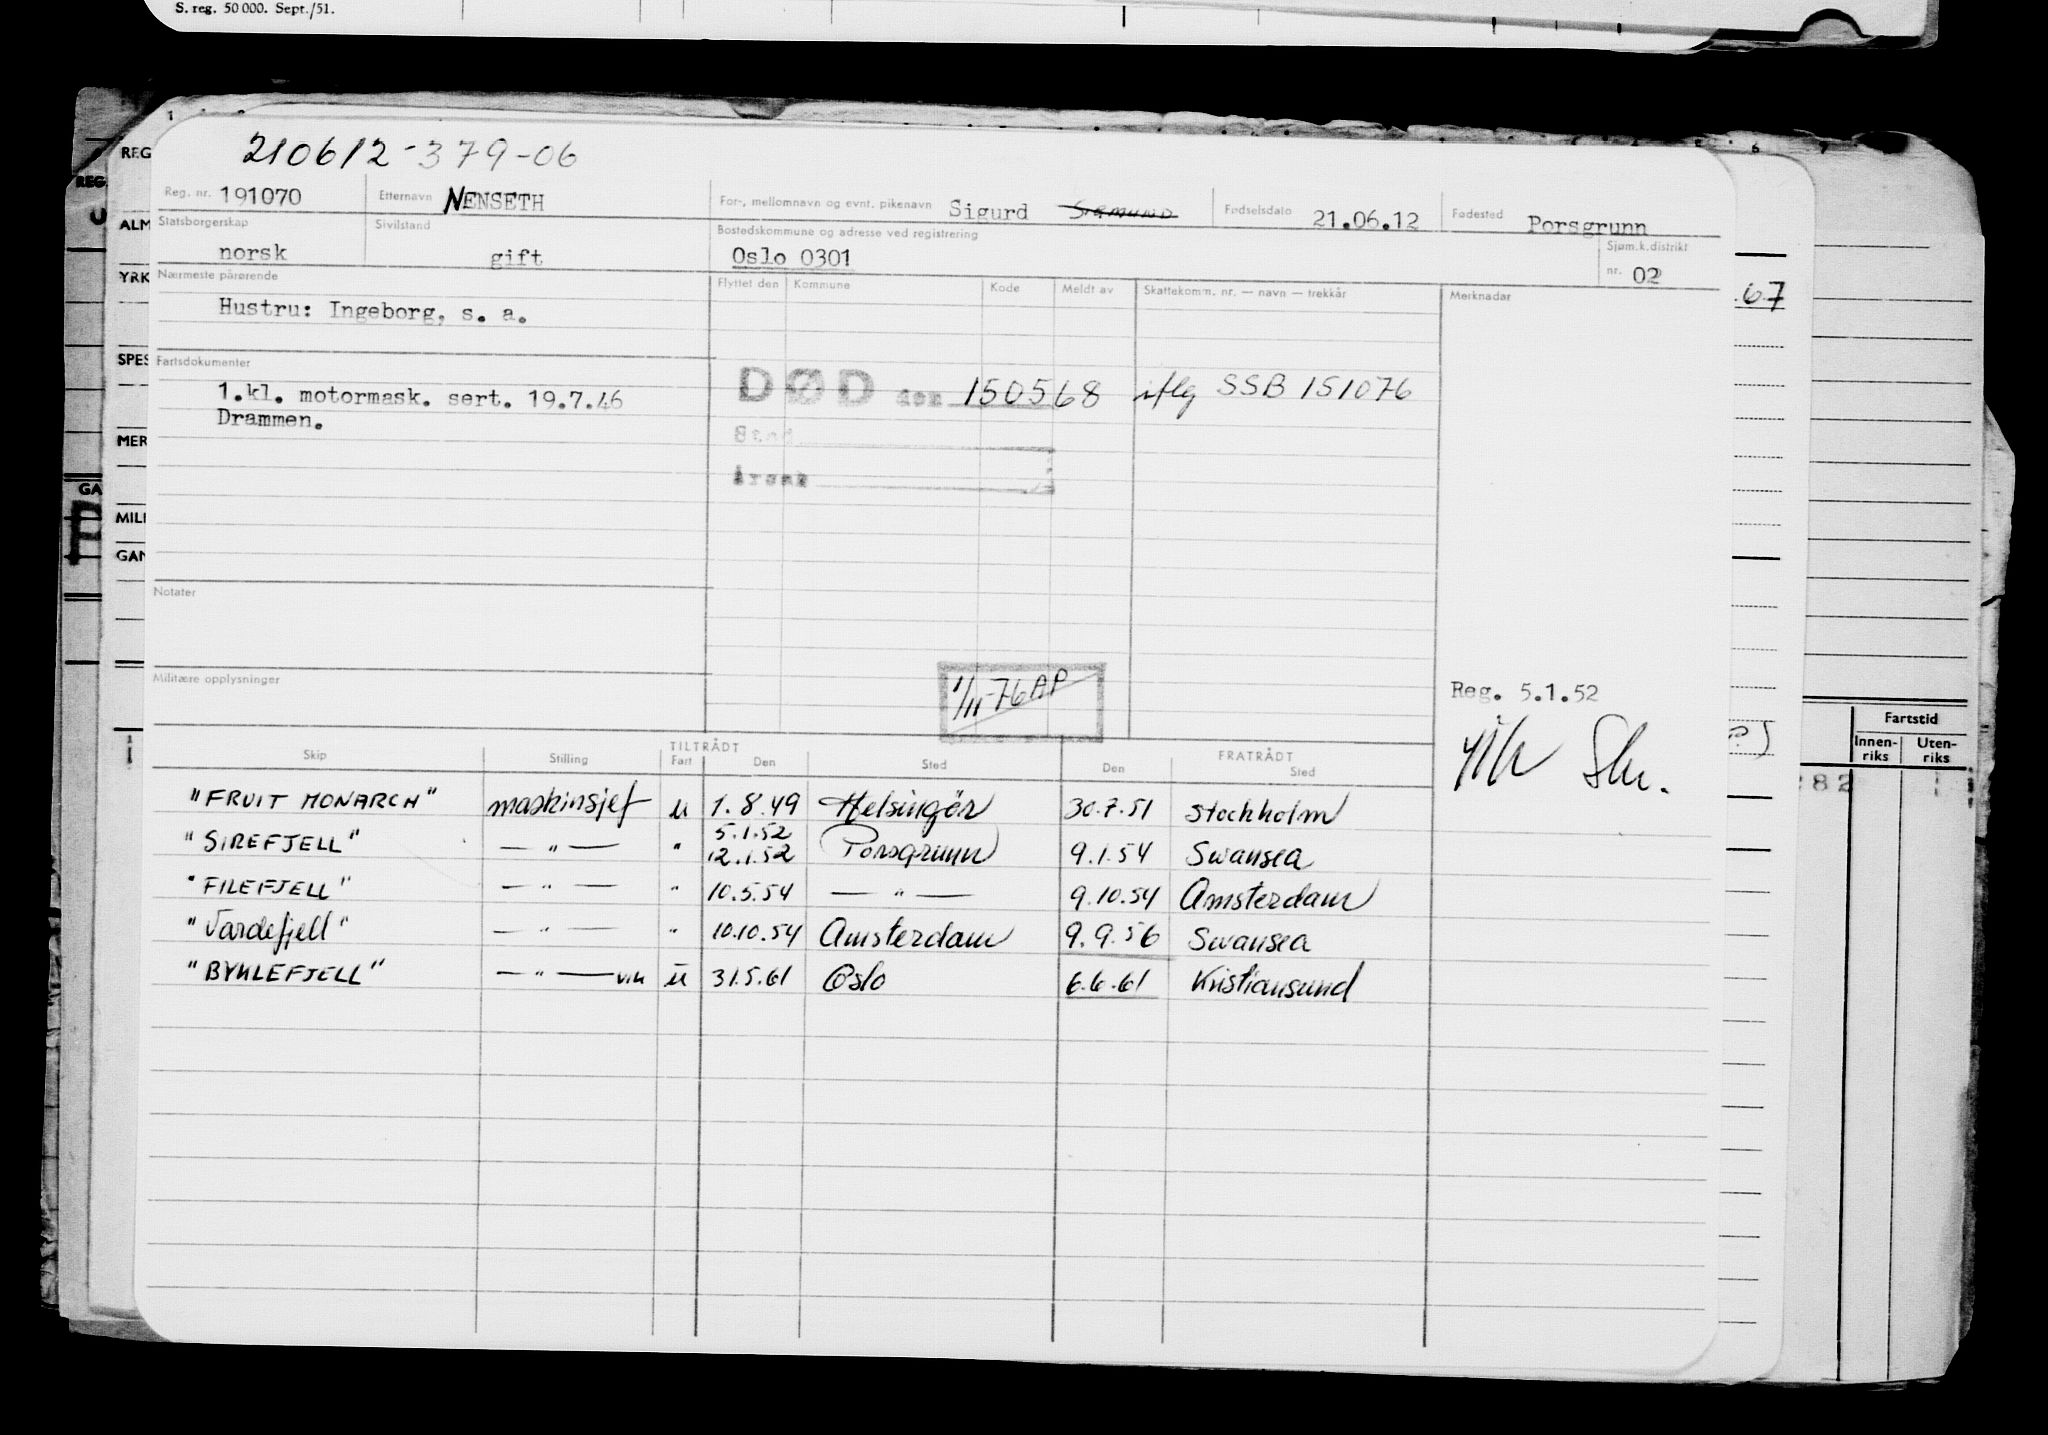 S. reg. 50 000. Sept./51.
210612-379-06
Reg. nr. 191070 Etternavn NENSETH For-, mellomnavn og evnt. pikenavn Sigurd Sigmund Fødselsdato 21.06.12 Fødested Porsgrunn
Statsborgerskap norsk Sivilstand gift Bostedskommune og adresse ved registrering Oslo 0301 Sjøm.k.distrikt nr. 02
Nærmeste pårørende Flyttet den Kommune Kode Meldt av Skattekomm. nr. — navn — trekkår Merknader
Hustru: Ingeborg, s. a.
Fartsdokumenter
1.kl. motormask. sert. 19.7.46
Drammen.
DØD den 150568 iflg SSB 151076
Sted
Årsak
Notater
Militære opplysninger
1/11-76 AP
Reg. 5.1.52
Skip Stilling TILTRÅDT Fart Den Sted FRATRÅDT Den Sted
"FRUIT MONARCH" maskinsjef u 1.8.49 Helsingör 30.7.51 Stockholm
5.1.52
"SIREFJELL" — " — " 12.1.52 Porsgrunn 9.1.54 Swansea
"FILEFJELL" — " — " 10.5.54 — " — 9.10.54 Amsterdam
"Vardefjell" — " — " 10.10.54 Amsterdam 9.9.56 Swansea
"BYKLEFJELL" — " — vik u 31.5.61 Oslo 6.6.61 Kristiansund
REG
REG.
ALM
YRK
SPES
MER
GA
MILI
GAN
.67
Fartstid
Innen-
riks
Uten-
riks
282